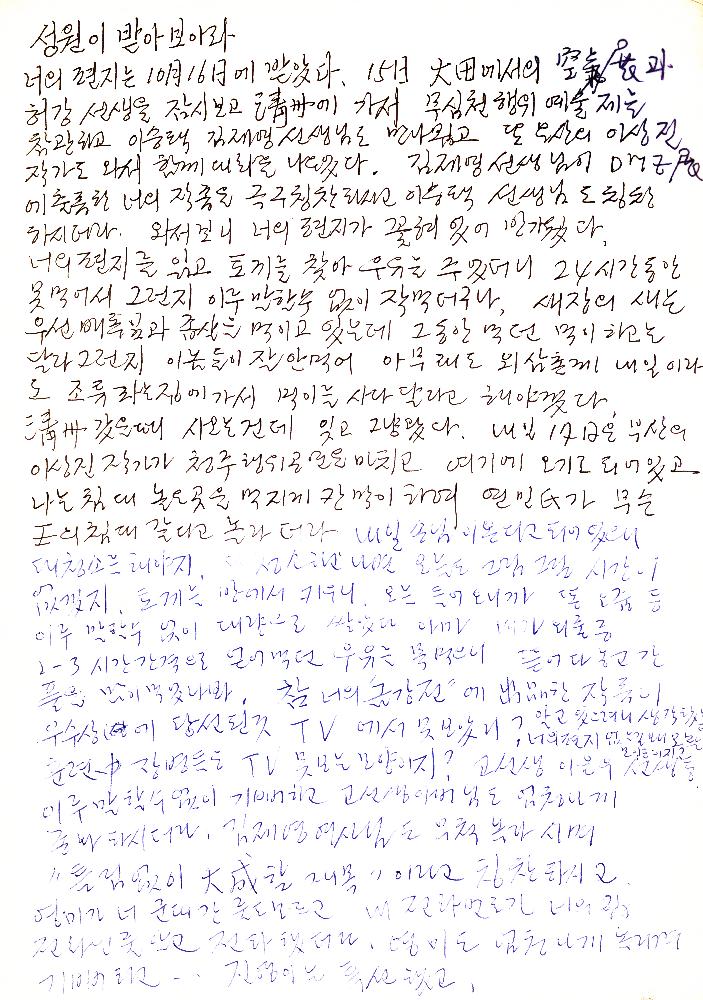 성원이 받아보아라
너의 편지는 10月16日에 받았다. 15日 大田에서의 空氣展과
허강 선생을 잠시보고 淸州에 가서 무심천행위예술제를
참관하고 이승택 김재영선생님도 만나뵙고 또 부산의 이상진
작가도 와서 함께 대화를 나눴다. 김재영선생님이 DMZ展
에 출품한 너의 작품을 극구칭찬하시고 이승택 선생님도 칭찬
하시더라. 와서보니 너의 편지가 꽂혀 있어 반가웠다.
너의 편지를 읽고 토끼를 찾아 우유를 주었더니 24시간동안
못먹어서 그런지 이루 말할수 없이 잘먹더구나, 새장의 새는
우선 배추잎과 좁쌀을 먹이고 있는데 그동안 먹던 먹이하고는
달라 그런지 이놈들이 잘안먹어 아무래도 외삼촌께 내일이라
도 조류 에가서 먹이를 사다 달라고 해야겠다
淸州 갔을때 사오는건데 잊고 그냥왔다. 내일 17日은 부산의
이상진 작가가 청주행위공연을 마치고 여기에 오기로 되어있고
나는 침대 놓는곳을 먹지게 칸막이 하여 연밀氏가 무슨
王의 침대 같다고 놀라더라 내일 손님이 온다고 되어 있으니
대청소는 해야지. 오늘도 그림 그릴 시간이
없겠지. 토끼는 방에서 키우니, 오늘 들어오니까 똥 오줌 등
이루 말할수 없이 대량으로 쌌었다 아마 내가 외출중
2-3 시간간격으로 얻어먹던 우유를 못먹으니 뜯어다 놓고 간
풀을 많이 먹었나봐. 참 너의 "금강전"에 出品한 작품이
우수상에 당선된것 TV 에서 못보았니? 알고 있으려니 생각했는데
너의편지 없는걸보니 모르는
모양이지?
훈련中 장병들은 TV 못보는모양이지? 고선생 이은우 선생등
이루말할수없이 기뻐하고 고선생어머님도 엄청나게
좋아 하시더라. 김재영여사님도 무척 놀라시며
"틀림없이 大成할 재목" 이라고 칭찬하시고
영미가 너 군대간줄도모르고 내 전화번호가 너의
전화인줄알고 전화했더라. 영미도 엄청나게 놀라며
기뻐하고 --